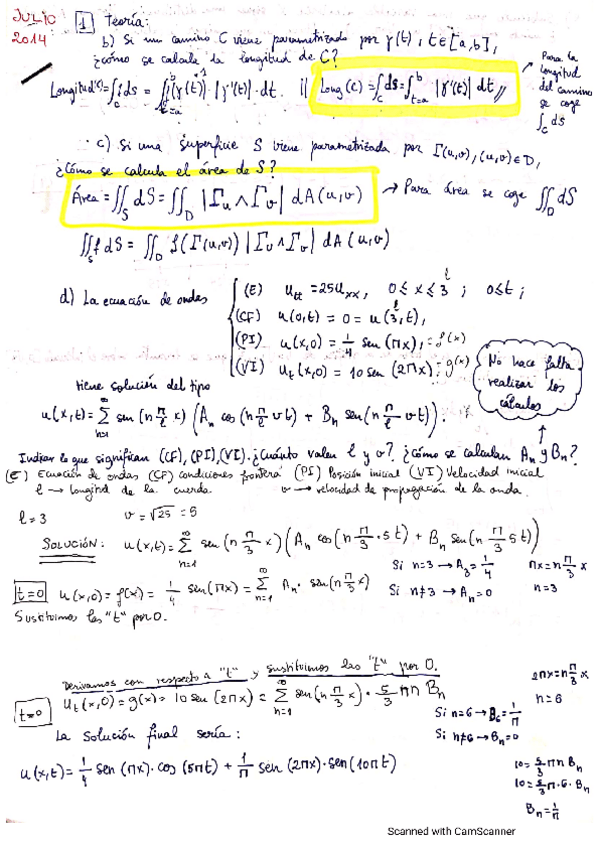 JULIO 2014
1 Teoría:
b) Si un camino C viene parametrizado por γ(t), t∈[a,b],
¿cómo se calcula la longitud de C?
Longitud(C)=∫f ds = ∫_{t=a}^{b} f(γ(t))·|γ'(t)|·dt. || Long(C)=∫_C ds=∫_{t=a}^{b} |γ'(t)| dt //
Para la longitud del camino se coge ∫_C ds
c) Si una superficie S viene parametrizada por Γ(u,v), (u,v)∈D,
¿Cómo se calcula el área de S?
Área = ∬_S dS = ∬_D |Γu ∧ Γv| dA(u,v) → Para área se coge ∬_D dS
∬_S f dS = ∬_D f(Γ(u,v)) |Γu ∧ Γv| dA(u,v)
d) La ecuación de ondas
(E) u_tt = 25u_xx, 0≤x≤3; 0≤t;
(CF) u(0,t) = 0 = u(3,t),
(PI) u(x,0) = 1/4 sen(πx), = f(x)
(VI) u_t(x,0) = 10 sen(2πx); = g(x)
No hace falta realizar los cálculos
tiene solución del tipo
u(x,t) = Σ_{n=1}^{∞} sen(n π/ℓ x) (A_n cos(n π/ℓ v t) + B_n sen(n π/ℓ v t)).
Indicar lo que significan (CF), (PI), (VI). ¿Cuánto valen ℓ y v?. ¿Cómo se calculan A_n y B_n?
(E) Ecuación de ondas (CF) condiciones frontera (PI) Posición inicial (VI) Velocidad inicial
ℓ → longitud de la cuerda v → velocidad de propagación de la onda.
ℓ = 3 v = √25 = 5
SOLUCIÓN: u(x,t) = Σ_{n=1}^{∞} sen(n π/3 x) (A_n cos(n π/3 · 5t) + B_n sen(n π/3 5t))
Si n=3 → A_3 = 1/4 πx = n π/3 x
t=0 u(x,0) = f(x) = 1/4 sen(πx) = Σ_{n=1}^{∞} A_n · sen(n π/3 x) Si n≠3 → A_n = 0 n=3
Sustituimos las "t" por 0.
Derivamos con respecto a "t" y sustituimos las "t" por 0.
t=0 u_t(x,0) = g(x) = 10 sen(2πx) = Σ_{n=1}^{∞} sen(n π/3 x) · 5/3 πn B_n
2πx = n π/3 x
n=6
Si n=6 → B_6 = 1/π
Si n≠6 → B_n = 0
10 = 5/3 πn B_n
10 = 5/3 π·6·B_n
B_n = 1/π
La solución final sería:
u(x,t) = 1/4 sen(πx)·cos(5πt) + 1/π sen(2πx)·sen(10πt)
Scanned with CamScanner